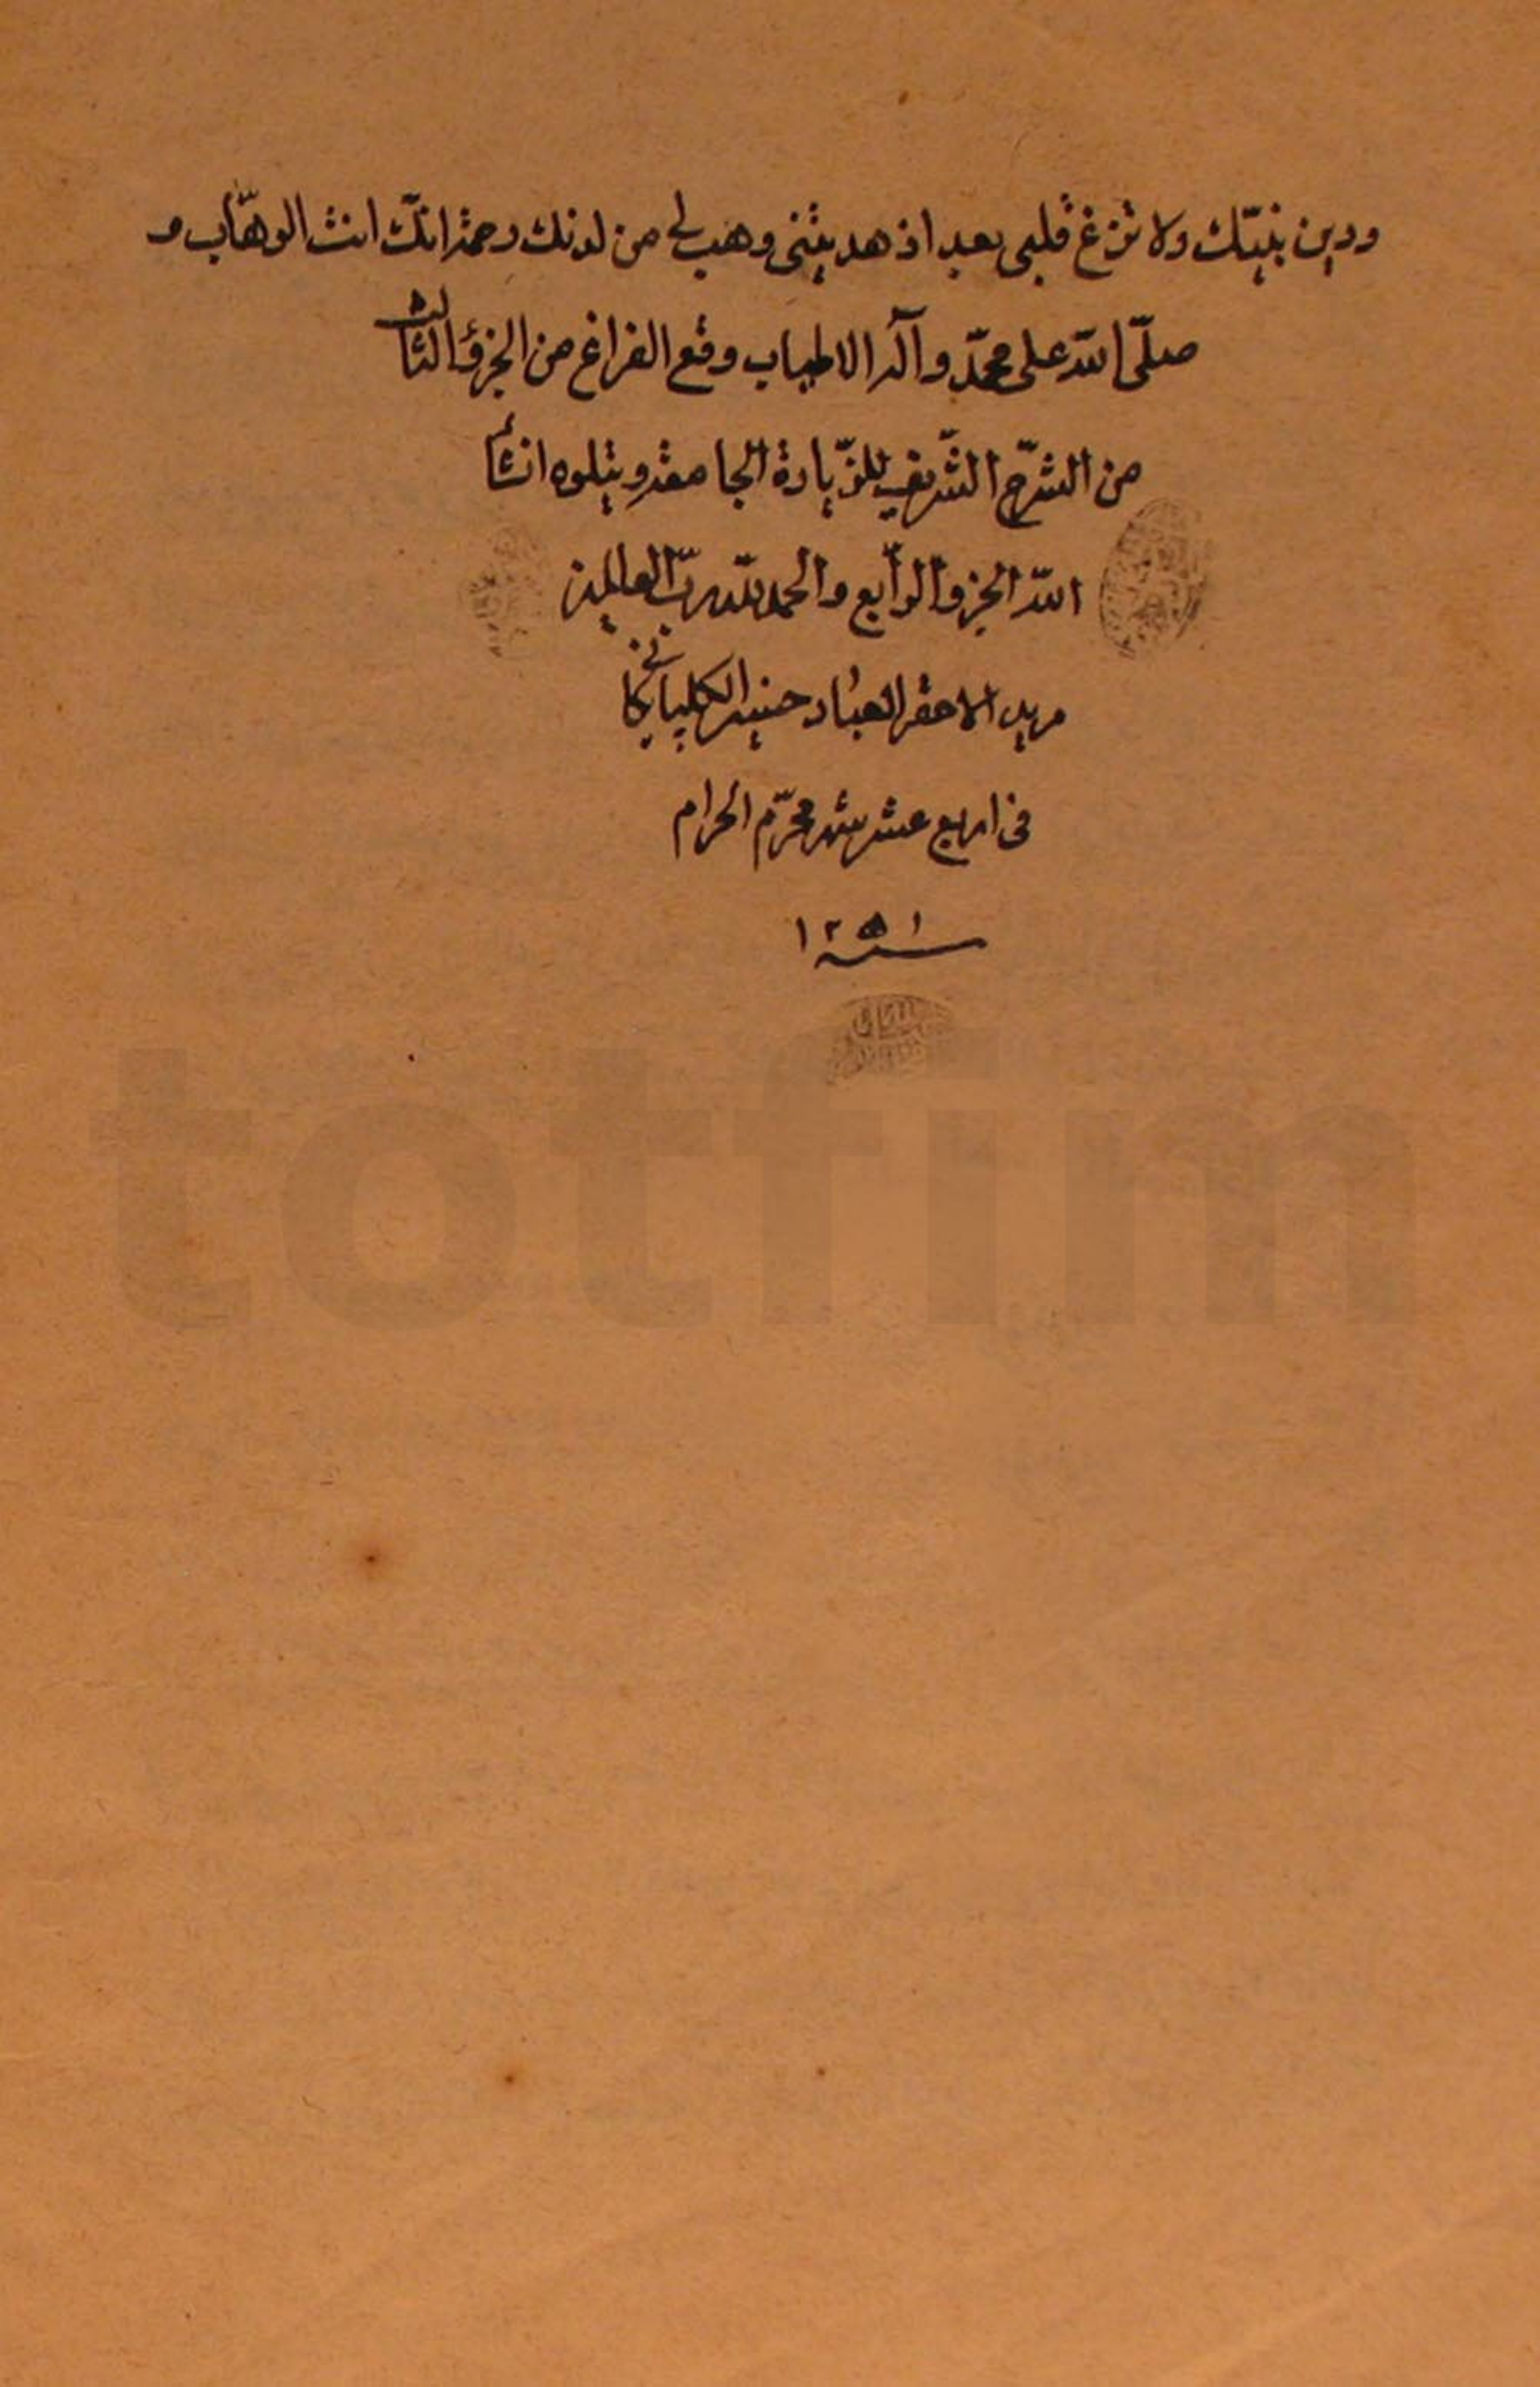 ودين نبيّك ولا تزغ قلبى بعد اذ هديتنى وهب لى من لدنك رحمة انّك انت الوهّاب و
صلّى الله على محمّد وآله الاطياب وقع الفراغ من الجزؤ الثالث
من الشّرح الشّريف للزّيارة الجامعة ويتلوه انشأ
الله الجزو الرابع والحمد لله ربّ العالمين
الاحقر العباد الگلپايگانى
فى اربع عشر شهر محرّم الحرام
سنه ١٢٥١
totfim